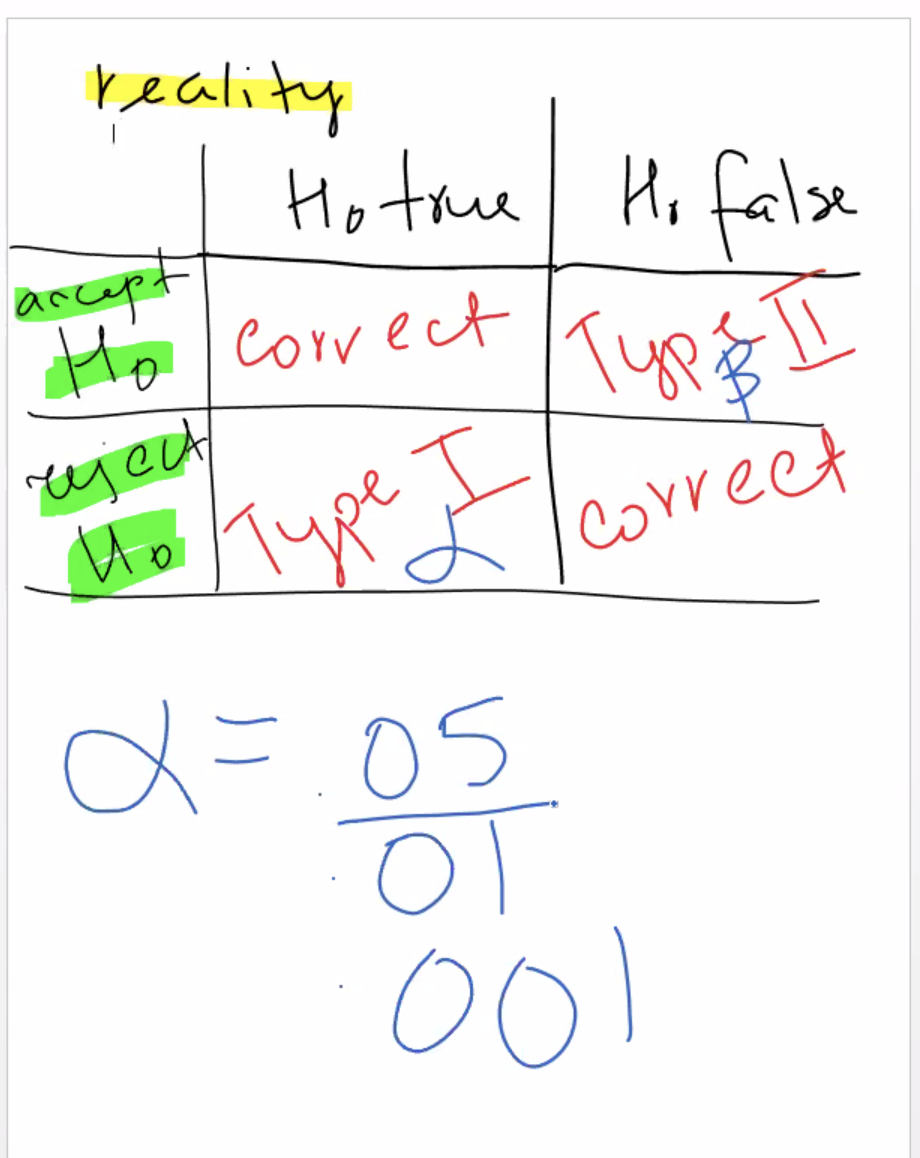 reality
H₀ true H₀ false
accept H₀ correct Type II β
reject H₀ Type I α correct
α = .05
.01
.001